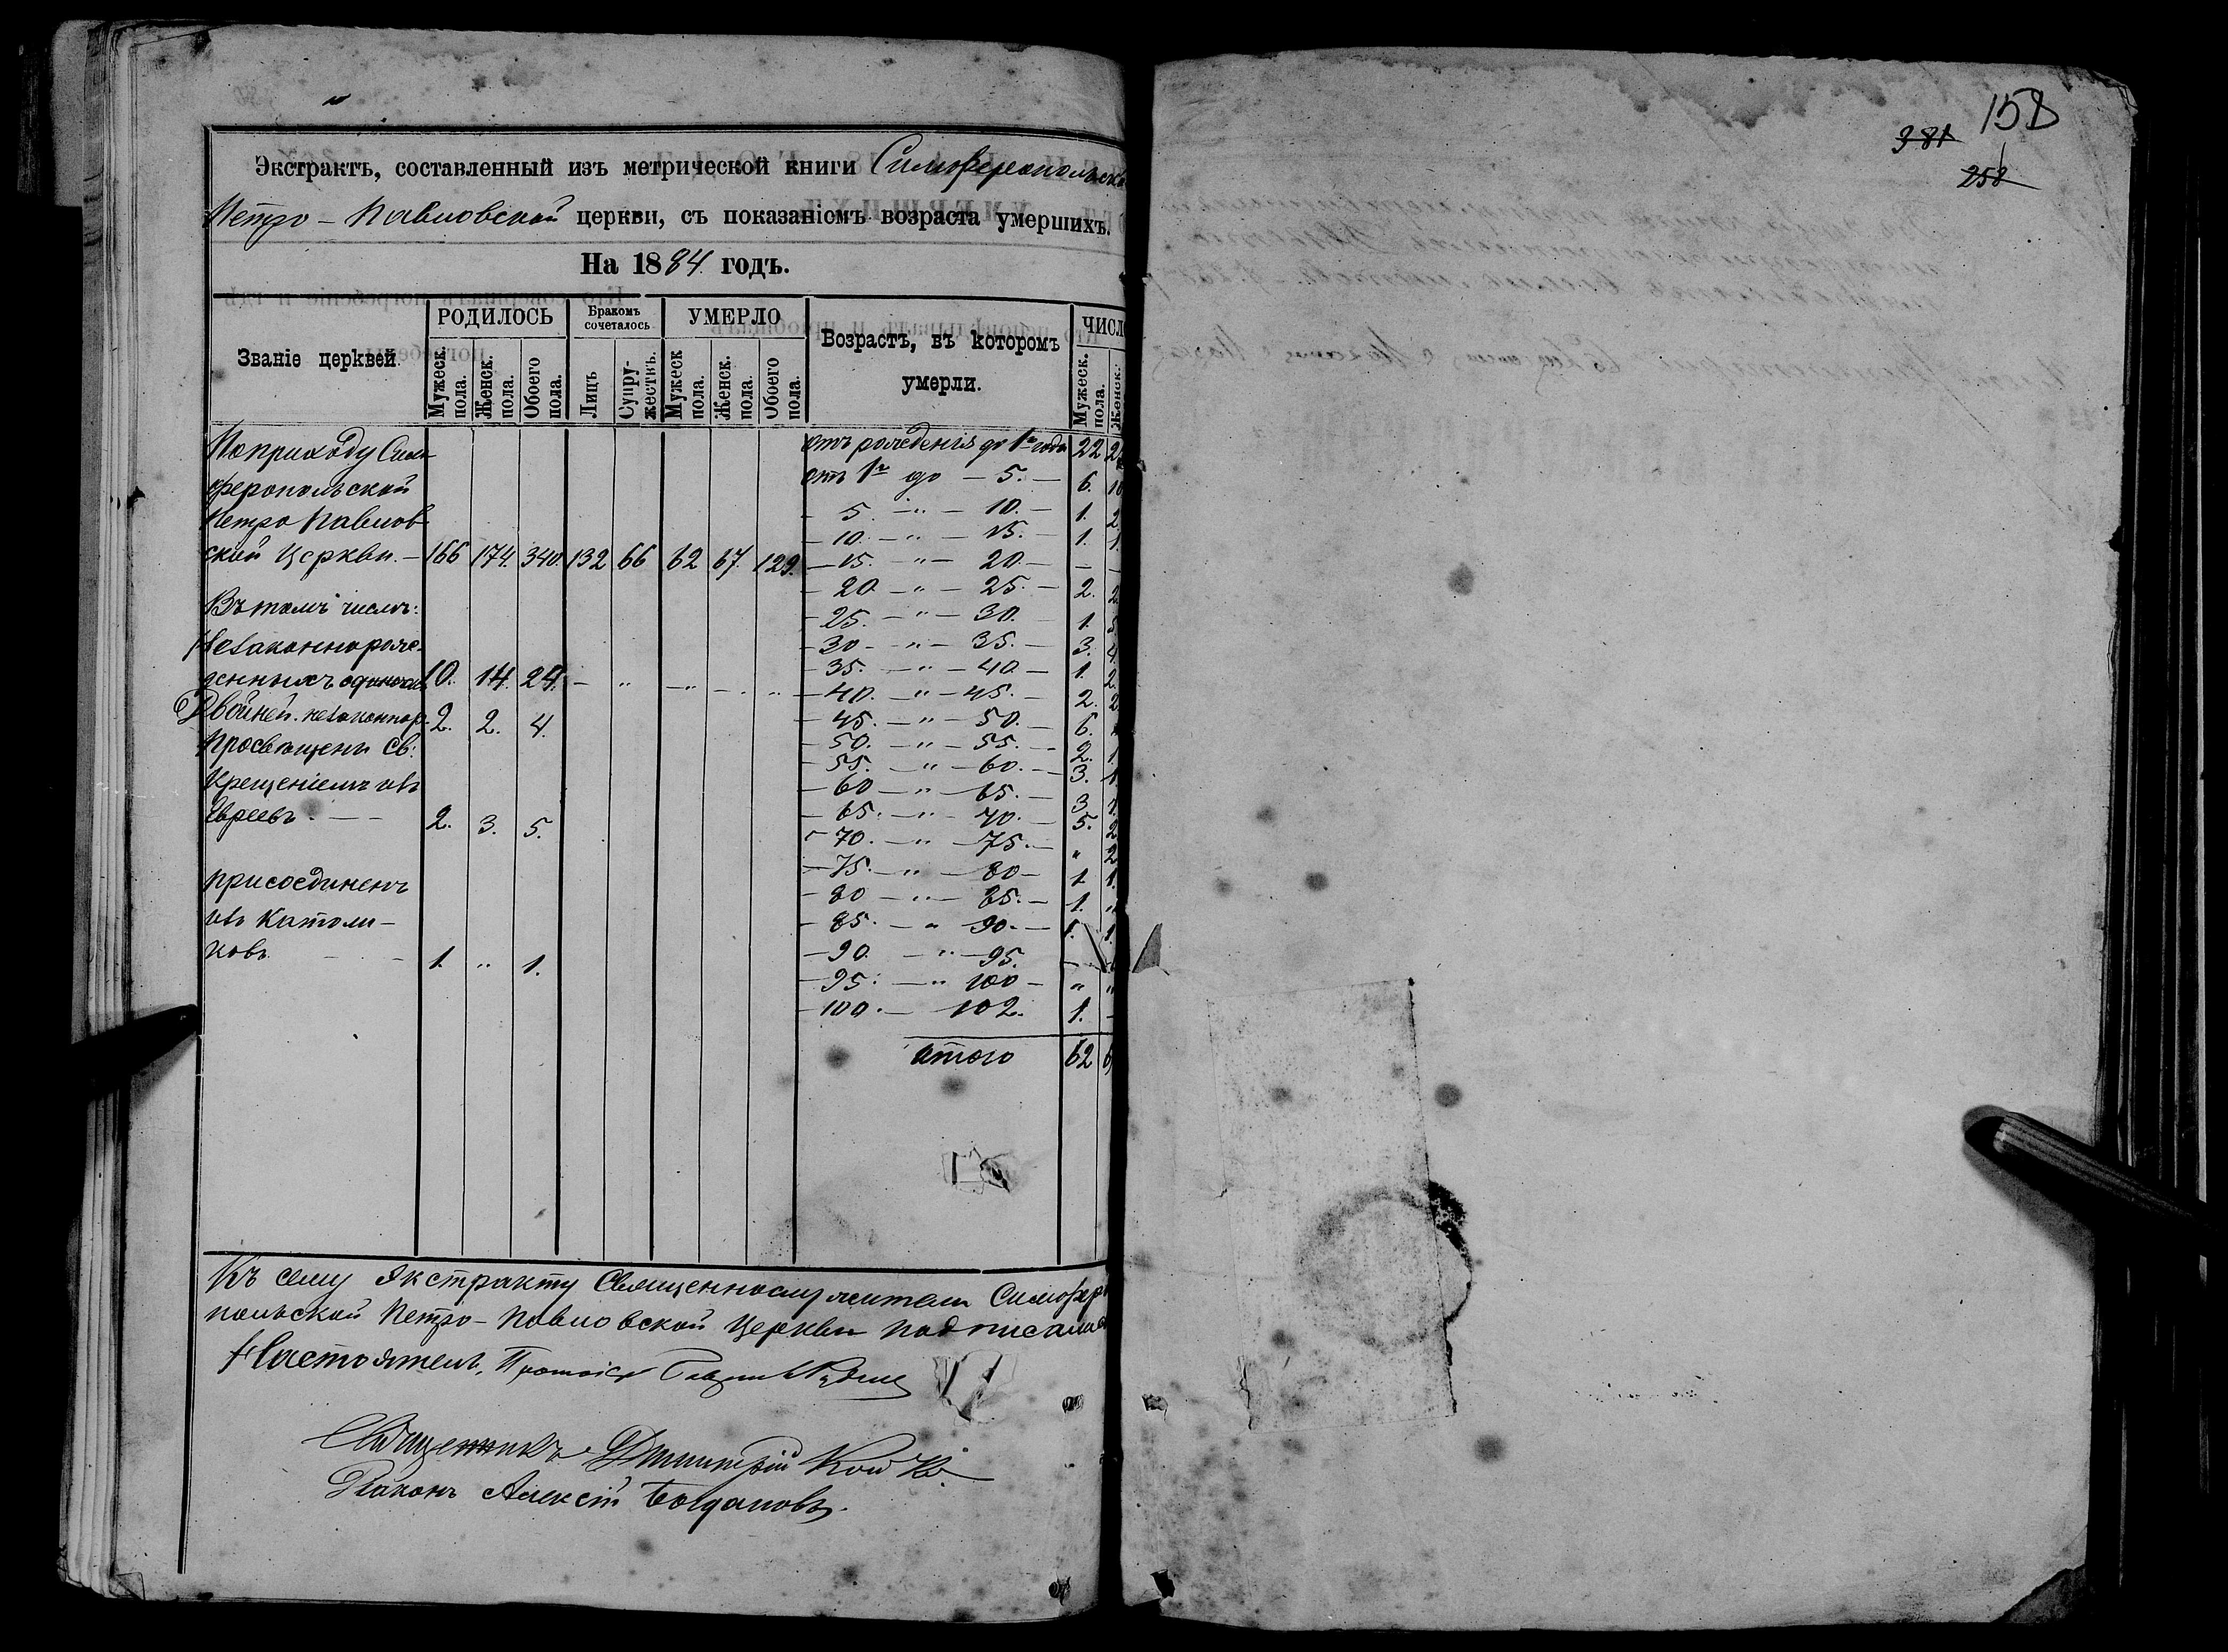 Экстрактъ, составленный изъ метрической книги Симферопольск
Петро - Павловской церкви, съ показаніемъ возраста умершихъ.
На 1884 годъ.
Званіе церквей.
РОДИЛОСЬ
Мужеск. пола.
Женск. пола.
Обоего пола.
Бракомъ сочеталось
Лицъ
Супружествъ.
УМЕРЛО
Мужеск пола.
Женск. пола.
Обоего пола.
Возрастъ, въ которомъ
умерли.
ЧИСЛ
Мужеск. пола.
Женск.
По приходу Сим
феропольской
Петро Павлов
ской Церкви. — 166 174. 340. 132 66 62 67. 129.
Въ томъ числѣ:
Незаконнорож
денныхъ 10. 14. 24. — „ — „ — „
Двойней. незаконнор. 2. 2. 4.
Просвѣщены Св.
Крещеніемъ изъ
Евреевъ. — — 2. 3. 5.
Присоединенъ
изъ Католи-
ковъ 1. „ 1.
отъ рожденія до 1го года 22
отъ 1го до — 5. — 6. 10
— 5. — „ — 10. — 1. 2.
— 10. — „ — 15. — 1. 1.
— 15. — „ — 20. — — —
— 20 — „ — 25. — 2. 2
— 25. — „ — 30. 1. 5.
— 30 — „ — 35. — 3. 4
— 35. — „ — 40. — 1. 2.
— 40. — „ — 45. — 2. 2
— 45. — „ — 50. — 6.
— 50. — „ — 55. — 2. 1
— 55. — „ — 60. — 3. 1.
— 60 — „ — 65. — 3
— 65. — „ — 70. — 5. 2
— 70. — „ — 75. — „ 2
— 75. — „ — 80 — 1 1.
— 80 — „ — 85. — 1. „
— 85. — „ — 90. — 1. 1.
— 90. — „ — 95. —
— 95. — „ 100 — „ „
— 100. — 102. 1. —
итого 62 6
Къ сему Экстракту Священнослужители Симферо
польской Петро-Павловской Церкви подписалис
Настоятель, Протоіер
Священникъ Димитрій Койко
Діаконъ Алексій Богдановъ.
158
381
258